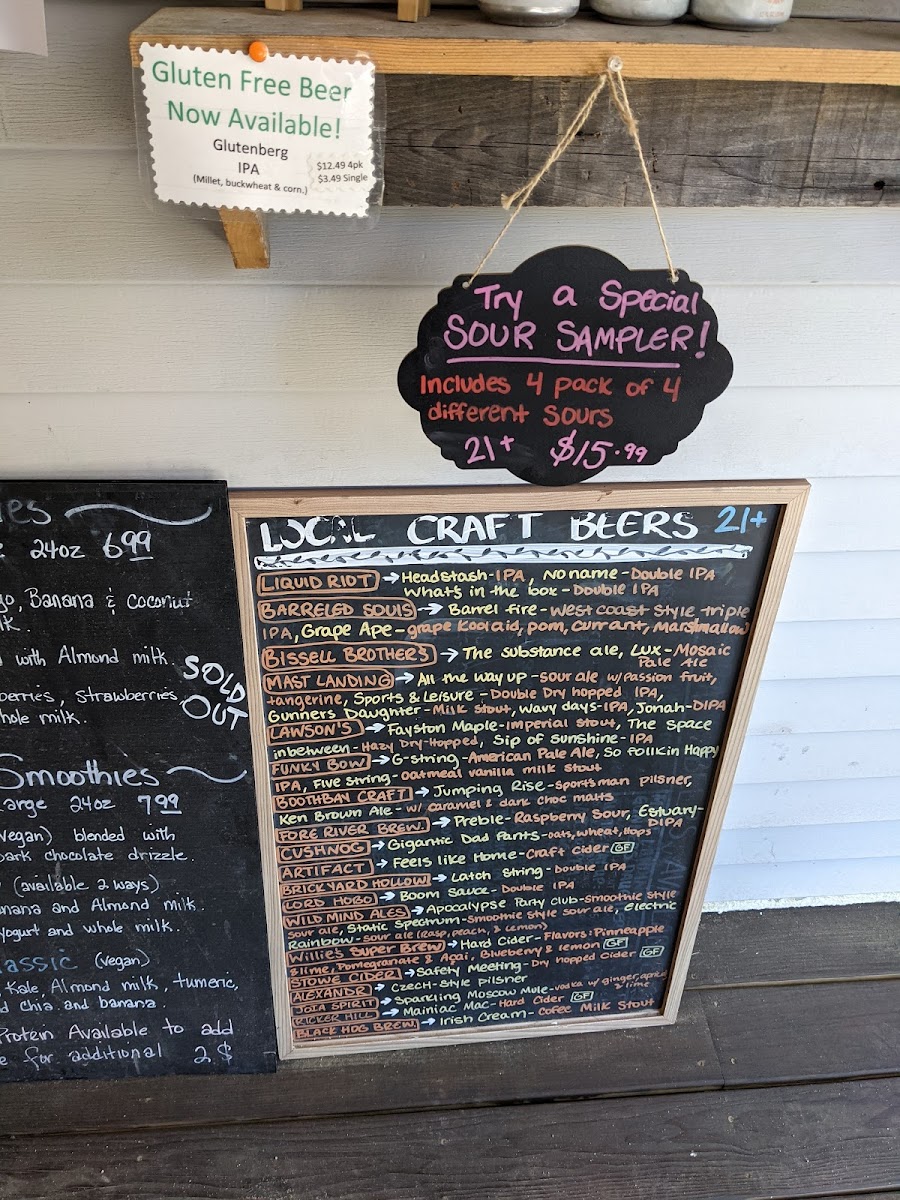 Gluten Free Beer
Now Available!
Glutenberg
IPA
(Millet, buckwheat & corn.)
$12.49 4pk
$3.49 Single
Try a Special
SOUR SAMPLER!
Includes 4 pack of 4
different sours
21+ $15.99
24oz 6.99
Banana & Coconut
with Almond milk.
SOLD
OUT
strawberries
whole milk.
Smoothies
Large 24oz 7.99
(vegan) blended with
dark chocolate drizzle.
(available 2 ways)
Banana and Almond milk.
yogurt and whole milk.
Classic (vegan)
Kale, Almond milk, tumeric,
chia and banana.
Protein Available to add
for additional 2 $
LOCAL CRAFT BEERS 21+
LIQUID RIOT → Headstash-IPA, No name-Double IPA
What's in the box-Double IPA
BARRELED SOULS → Barrel fire-West coast style triple
IPA, Grape Ape-grape koolaid, pom, currant, Marshmallow
BISSELL BROTHERS → The substance ale, Lux-Mosaic
Pale Ale
MAST LANDING → All the way up-sour ale w/passion fruit,
tangerine, Sports & Leisure-Double Dry hopped IPA,
Gunners Daughter-Milk stout, Wavy days-IPA, Jonah-DIPA
LAWSON'S → Fayston Maple-Imperial stout, The space
inbetween-Hazy Dry-Hopped, Sip of Sunshine-IPA
FUNKY BOW → G-string-American Pale Ale, So Folkin Happy
IPA, Five String-oatmeal vanilla milk stout
BOOTHBAY CRAFT → Jumping Rise-Sportsman pilsner,
Ken Brown Ale-w/ caramel & dark choc malts
FORE RIVER BREW. → Preble-Raspberry Sour, Estuary-
DIPA
CUSHNOG → Gigantic Dad Pants-oats, wheat, hops
ARTIFACT → Feels like Home-Craft Cider GF
BRICKYARD HOLLOW → Latch String-Double IPA
LORD HOBO → Boom Sauce-Double IPA
WILD MIND ALES → Apocalypse Party Club-Smoothie style
sour ale, Static Spectrum-Smoothie style sour ale, electric
Rainbow-sour ale (rasp, peach, & lemon)
Willie's Super Brew → Hard Cider-Flavors: Pinneapple
& lime, Pomegranate & Acai, Blueberry & lemon GF
STOWE CIDER → Safety Meeting-Dry hopped Cider GF
ALEXANDR → Czech-Style pilsner
JOIA SPIRIT → Sparkling Moscow Mule-vodka w/ ginger, apricot
& lime
RICKER HILL → Mainiac Mac-Hard Cider GF
BLACK HOG BREW. → Irish Cream-Cofee Milk Stout